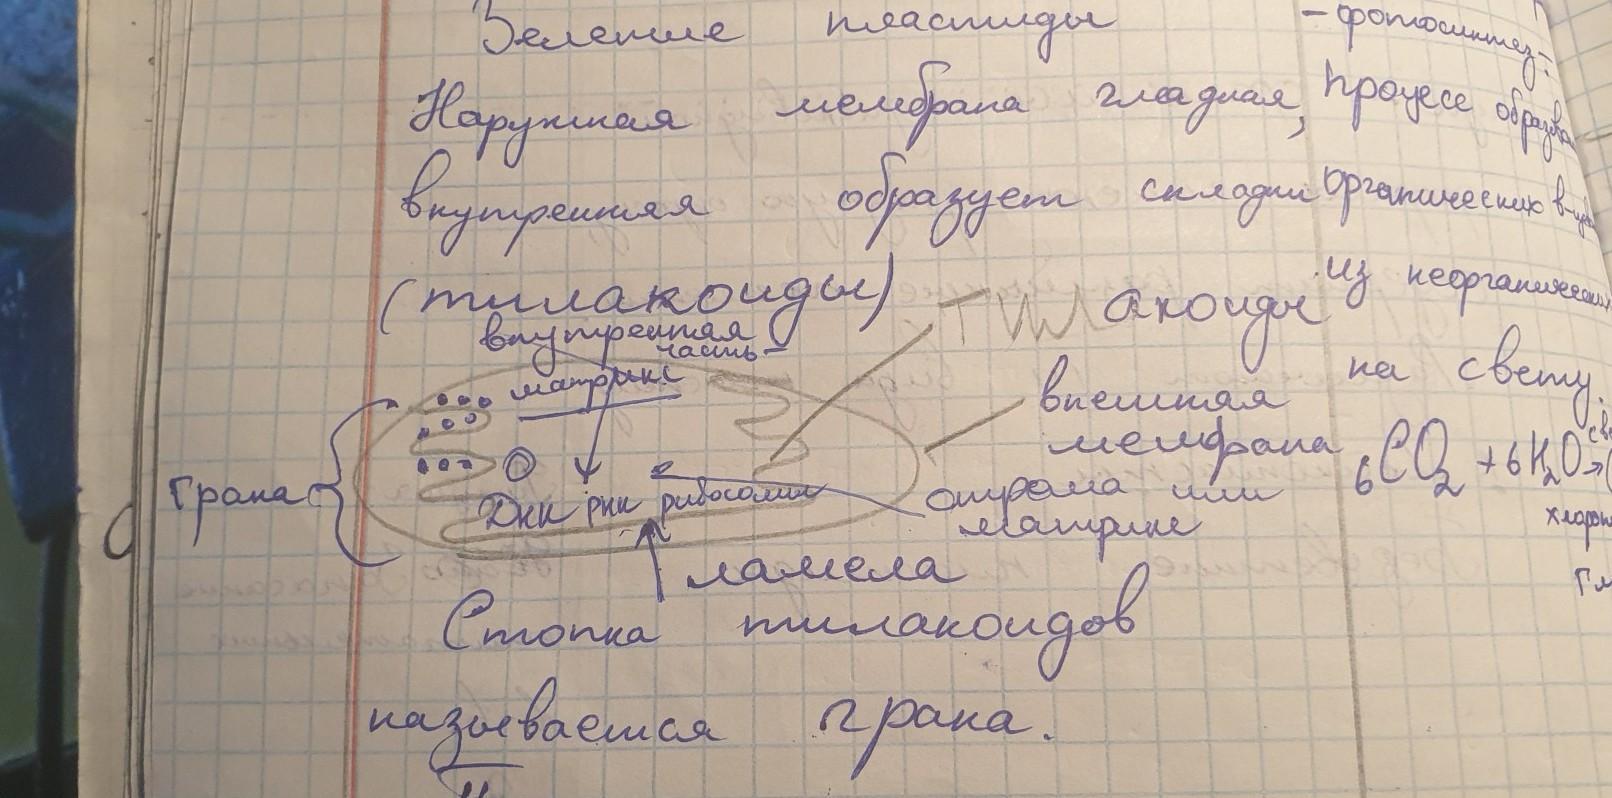 Зеленые пластиды
Наружная мембрана гладкая,
внутренняя образует складки
(тилакоиды)
- фотосинтез -
процесс образован
органических в-ив
из неорганических
на свету.
6CO₂ + 6H₂O →
внутренняя
часть -
матрикс
Тилакоиды
внешняя
мембрана
Грана
ДНК РНК рибосомы
строма или
матрикс
ламела
Стопка тилакоидов
называется грана.